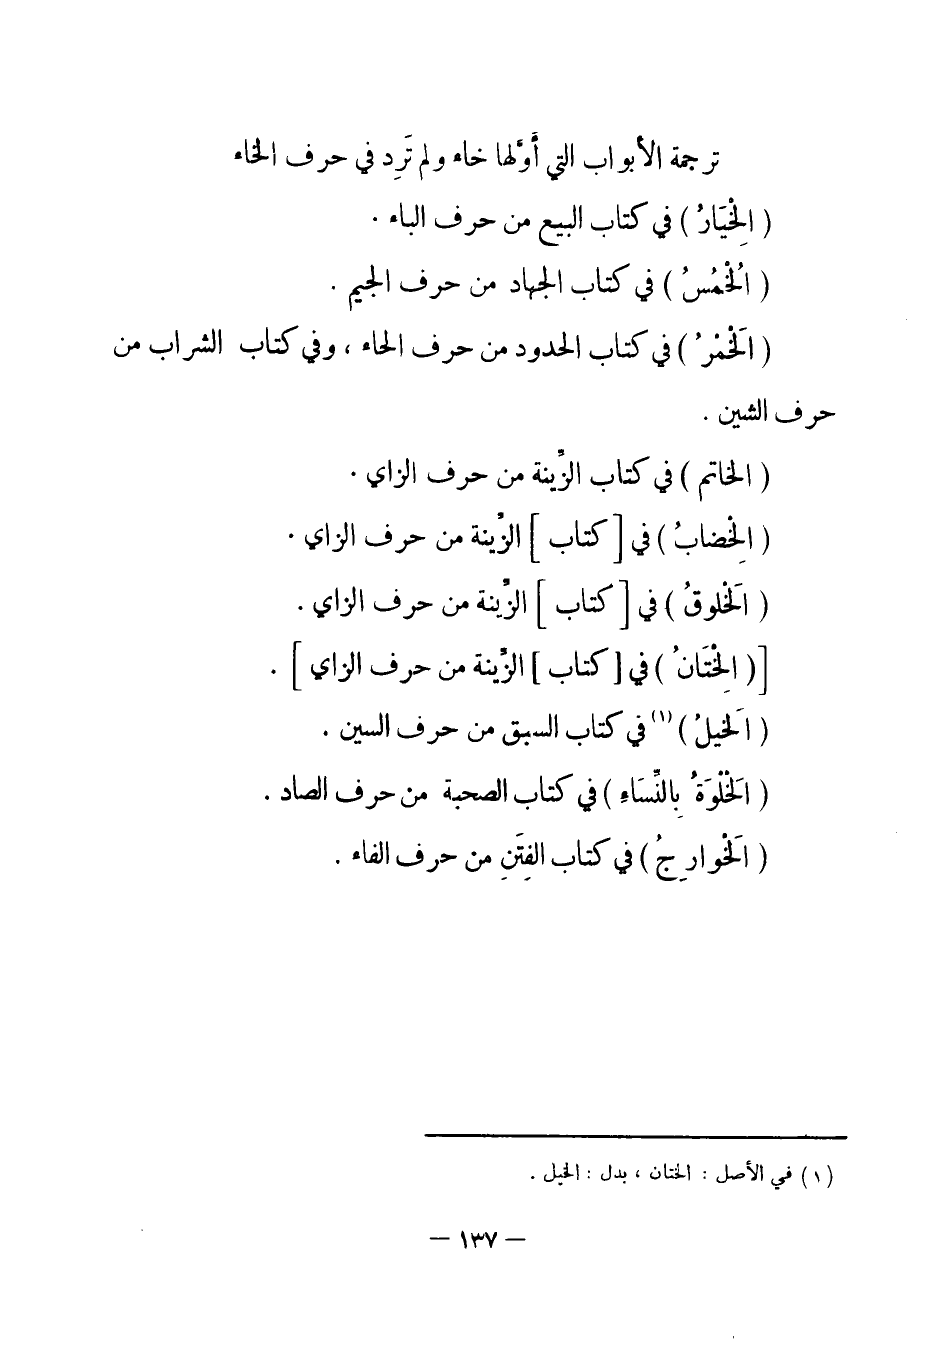 ترجمة الأبواب التي أَوَّلها خاء ولم تَرِد في حرف الخاء
( الخِْيَارُ ) في كتاب البيع من حرف الباء .
( الُخْمُسُ ) في كتاب الجهاد من حرف الجيم .
( الَخْمْرُ ) في كتاب الحدود من حرف الحاء ، وفي كتاب الشراب من
حرف الشين .
( الخاتم ) في كتاب الزِّينة من حرف الزاي .
( الِخْضابُ ) في [ كتاب ] الزِّينة من حرف الزاي .
( الَخْلوقُ ) في [ كتاب ] الزِّينة من حرف الزاي .
[ ( الِخْتَانُ ) في [ كتاب ] الزِّينة من حرف الزاي ] .
( الَخيلُ ) (١) في كتاب السبق من حرف السين .
( الَخْلْوَةُ بِالنِّسَاءِ ) في كتاب الصحبة من حرف الصاد .
( الَخْوارِجُ ) في كتاب الفِتَنِ من حرف الفاء .
(١) في الأصل : الختان ، بدل : الخيل .
— ١٣٧ —